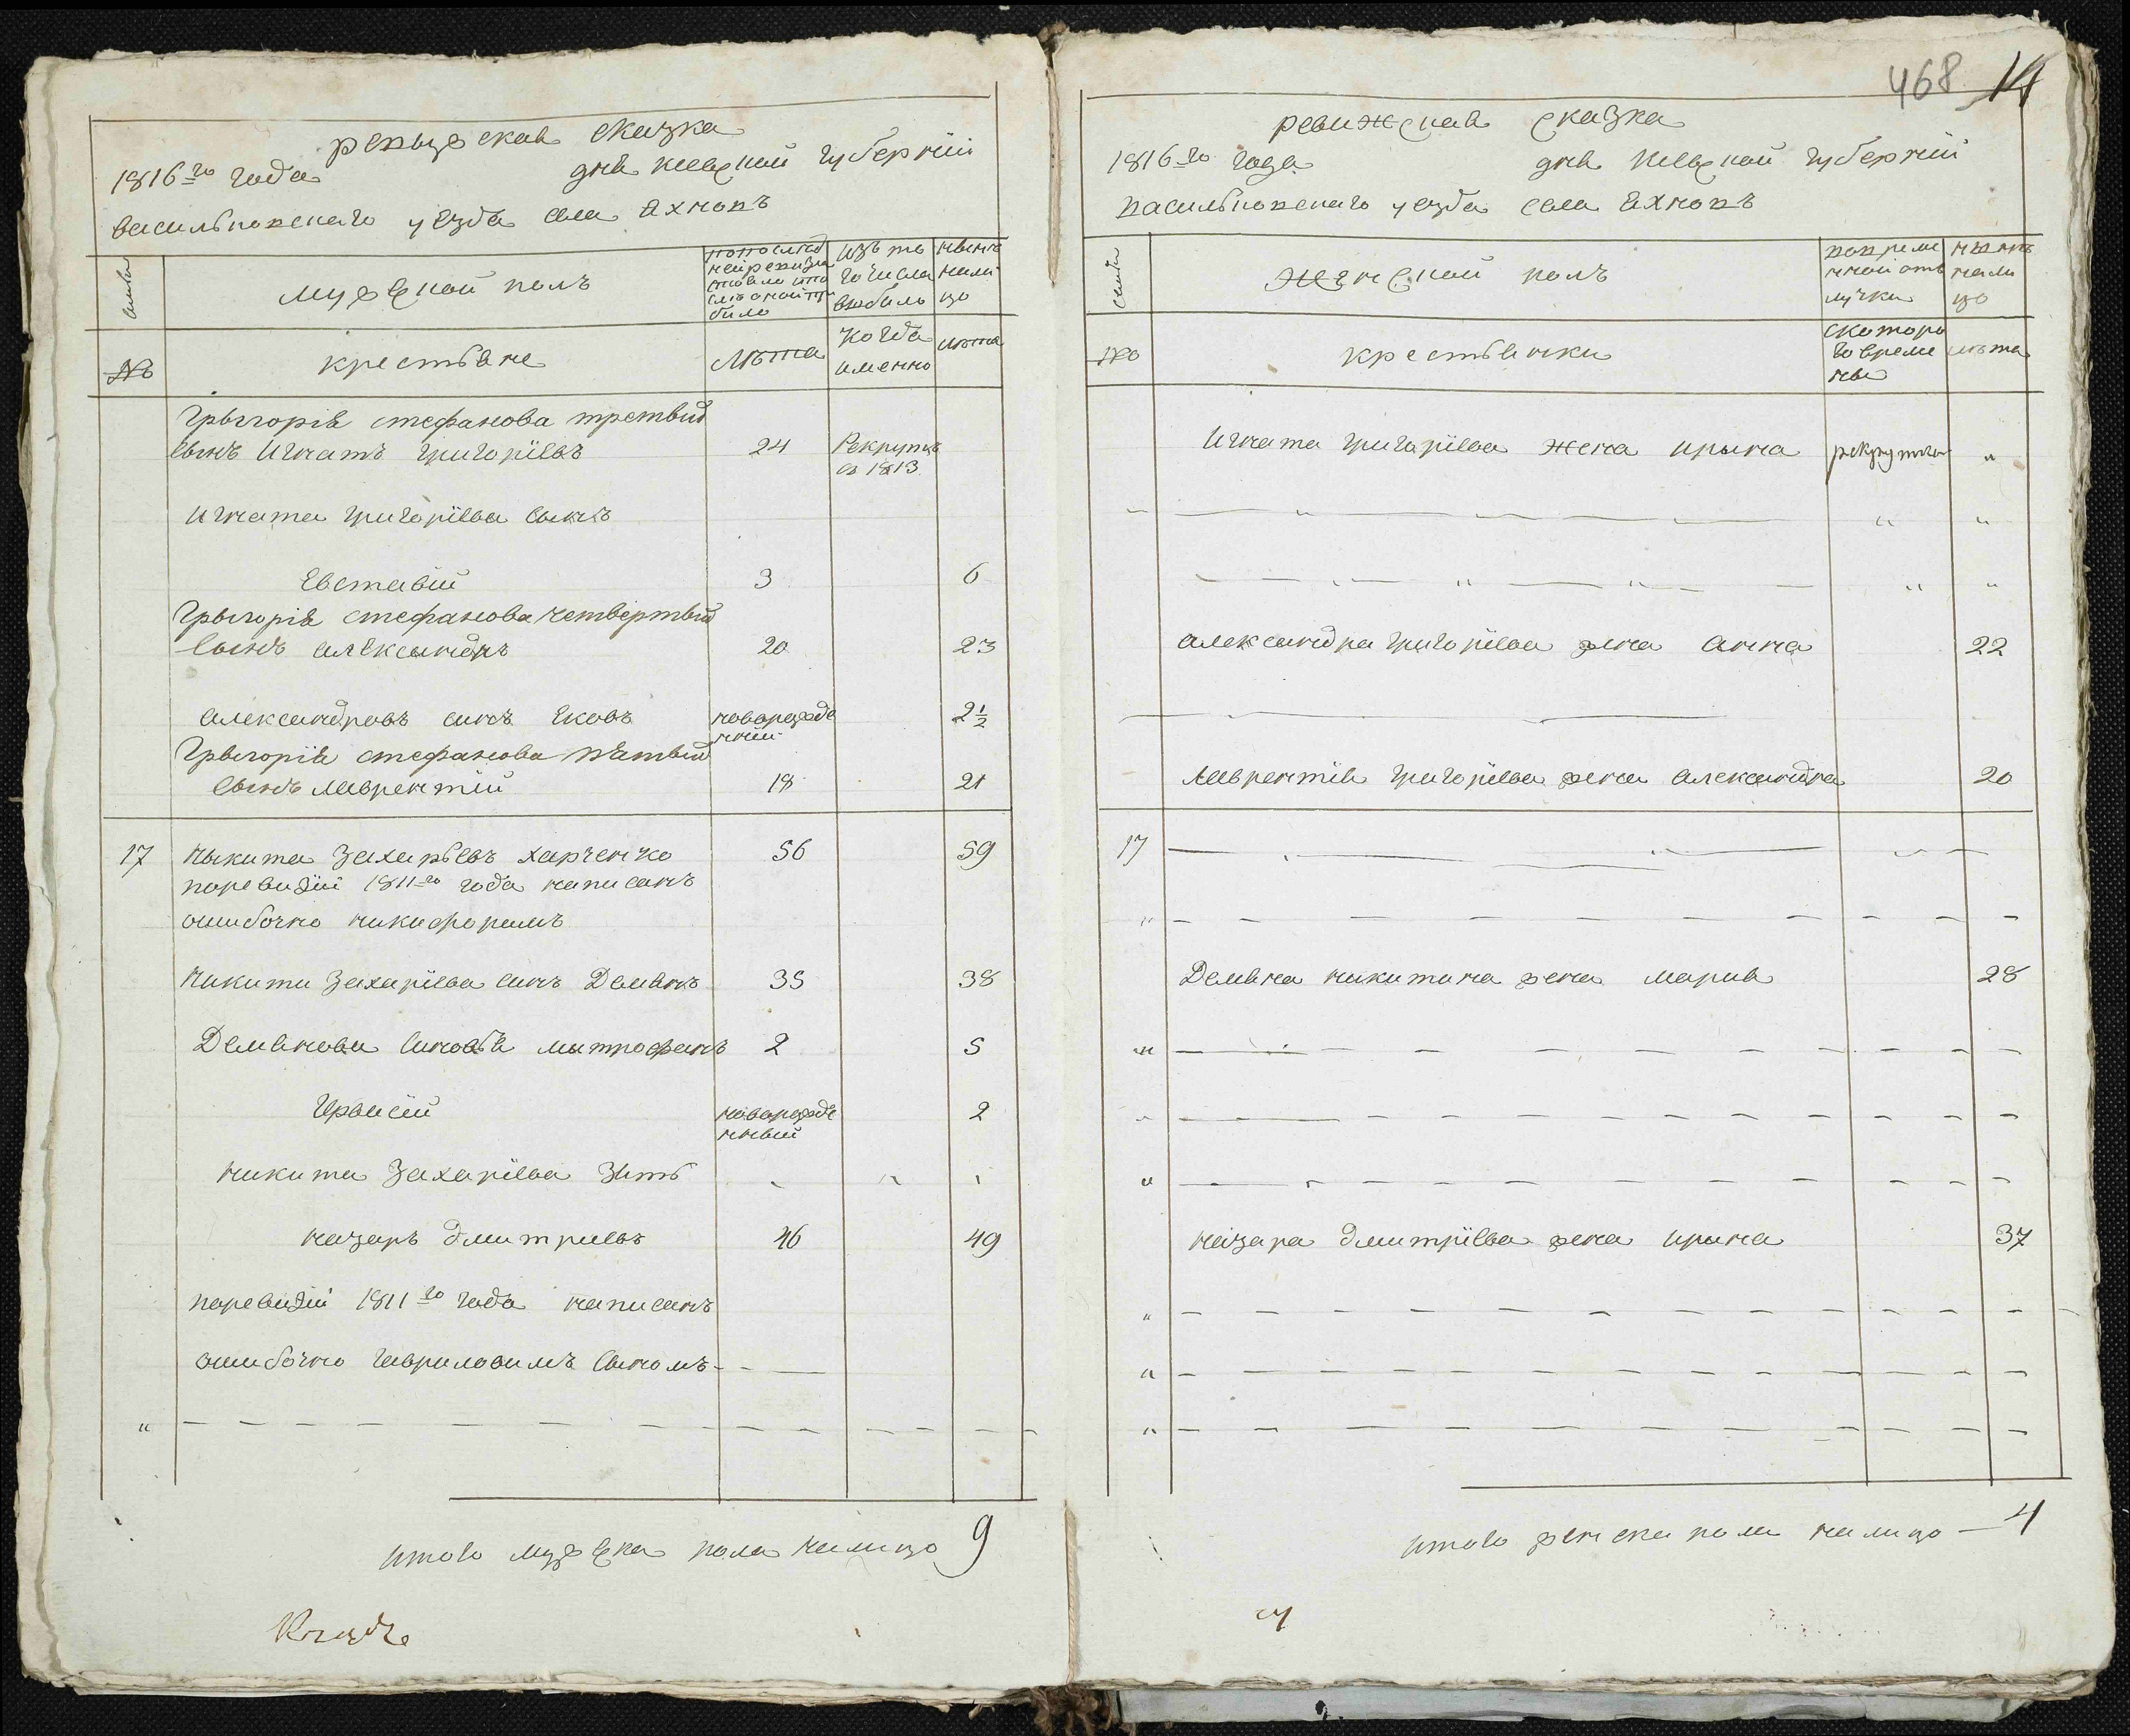 468 14
ревизская сказка
1816=го года дня Киевской губернии
васильковского уезда села Яхновъ
семьи
мужеской полъ
по последней ревизии состояло и после оной прибыло
изъ того числа выбыло
ныне на лицо
№
крестьяне
лѣта
когда именно
лѣта
Грыгорія стефанова третьый
сынъ Игнатъ григоріевъ 24 Рекрутъ
въ 1813
игната григоріева сынъ
Евстафій 3 6
Грыгорія стефанова четвертый
сынъ александръ 20 23
александровъ синъ яковъ новорожденній 2½
Грыгорія стефанова пятый
сынъ лаврентій 18 21
17 Никита Захарьевъ харченко 56 59
поревизіи 1811=го года написанъ
ошибочно никифорамъ
Никити Захаріева синъ Демянъ 35 38
Демянови синовья митрофанъ 2 5
новорожденный 2
никита Захаріева Зять
назаръ дмитриевъ 46 49
поревизіи 1811=го года написанъ
ошибочно гавриловимъ сыномъ
итого мужеска пола налицо 9
ревижская сказка
1816=го года дня Киевской губерніи
васильковского уезда села Яхновъ
семьи
женской полъ
во временной отлучки
ныне на лицо
№
крестьянки
с котораго времены
лѣта
Игната григоріева жена ирына рекрутка "
александра григоріева жена анна 22
Лаврентія григоріева жена александра 20
17
Демяна никитина жена мария 28
назара дмитріева жена ирина 37
итого женска пола налицо — 4